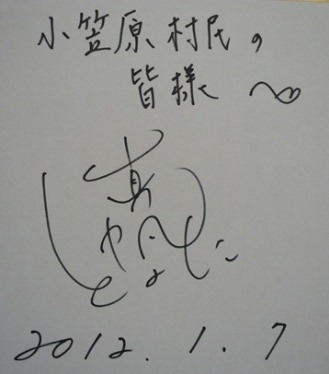 小笠原村民の
皆様へ
2012.1.7